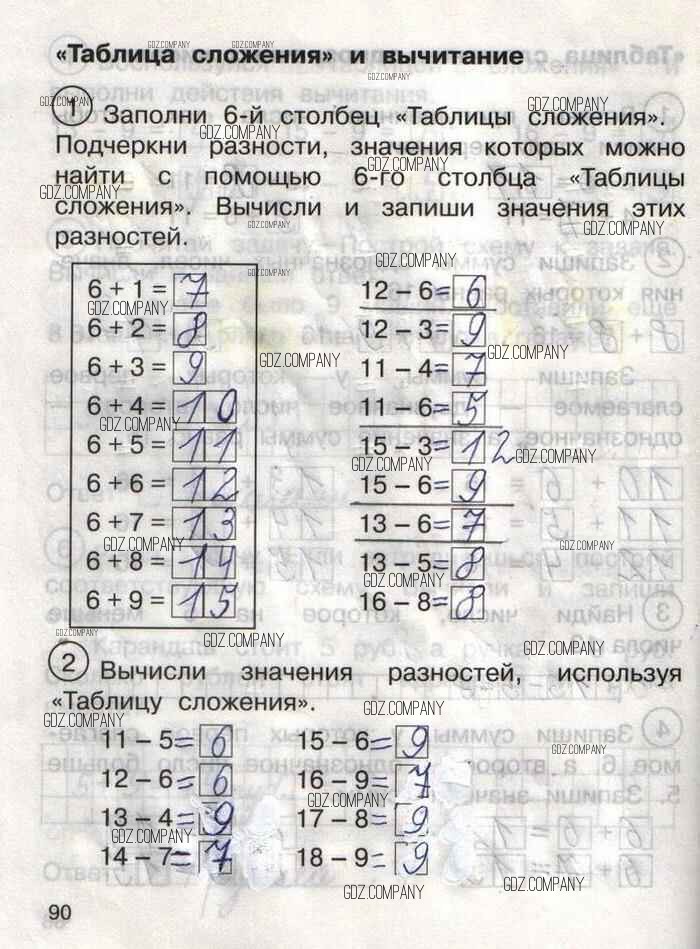 «Таблица сложения» и вычитание
1 Заполни 6-й столбец «Таблицы сложения».
Подчеркни разности, значения которых можно
найти с помощью 6-го столбца «Таблицы
сложения». Вычисли и запиши значения этих
разностей.
6 + 1 = 7
6 + 2 = 8
6 + 3 = 9
6 + 4 = 10
6 + 5 = 11
6 + 6 = 12
6 + 7 = 13
6 + 8 = 14
6 + 9 = 15
12 – 6 = 6
12 – 3 = 9
11 – 4 = 7
11 – 6 = 5
15 – 3 = 12
15 – 6 = 9
13 – 6 = 7
13 – 5 = 8
16 – 8 = 8
2 Вычисли значения разностей, используя
«Таблицу сложения».
11 – 5 = 6
12 – 6 = 6
13 – 4 = 9
14 – 7 = 7
15 – 6 = 9
16 – 9 = 7
17 – 8 = 9
18 – 9 = 9
90
GDZ.COMPANY